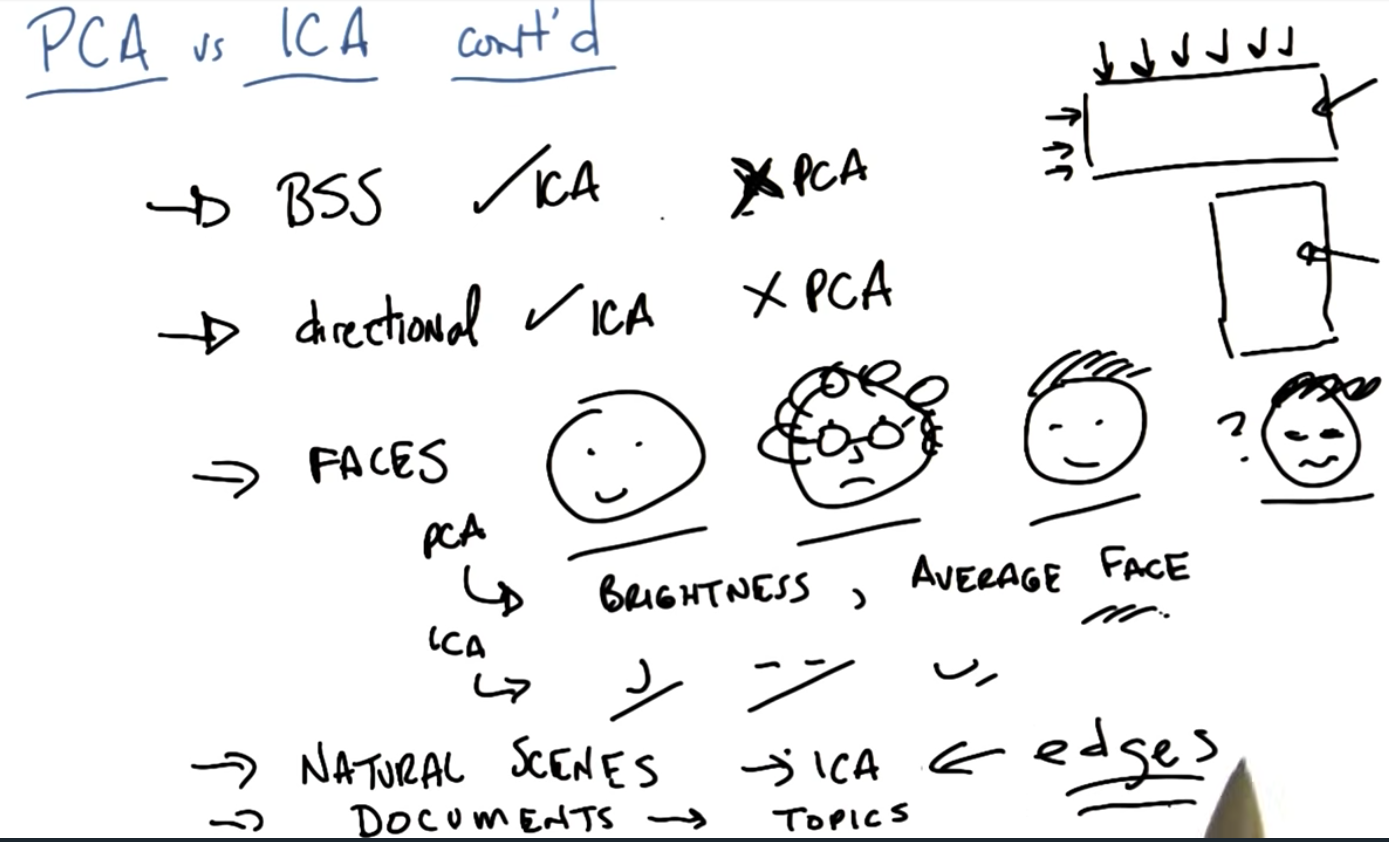 PCA vs ICA cont'd
→ BSS ✓ ICA X PCA
→ directional ✓ ICA X PCA
→ FACES ?
PCA
↳ BRIGHTNESS, AVERAGE FACE
ICA
↳
→ NATURAL SCENES → ICA ← edges
→ DOCUMENTS → TOPICS